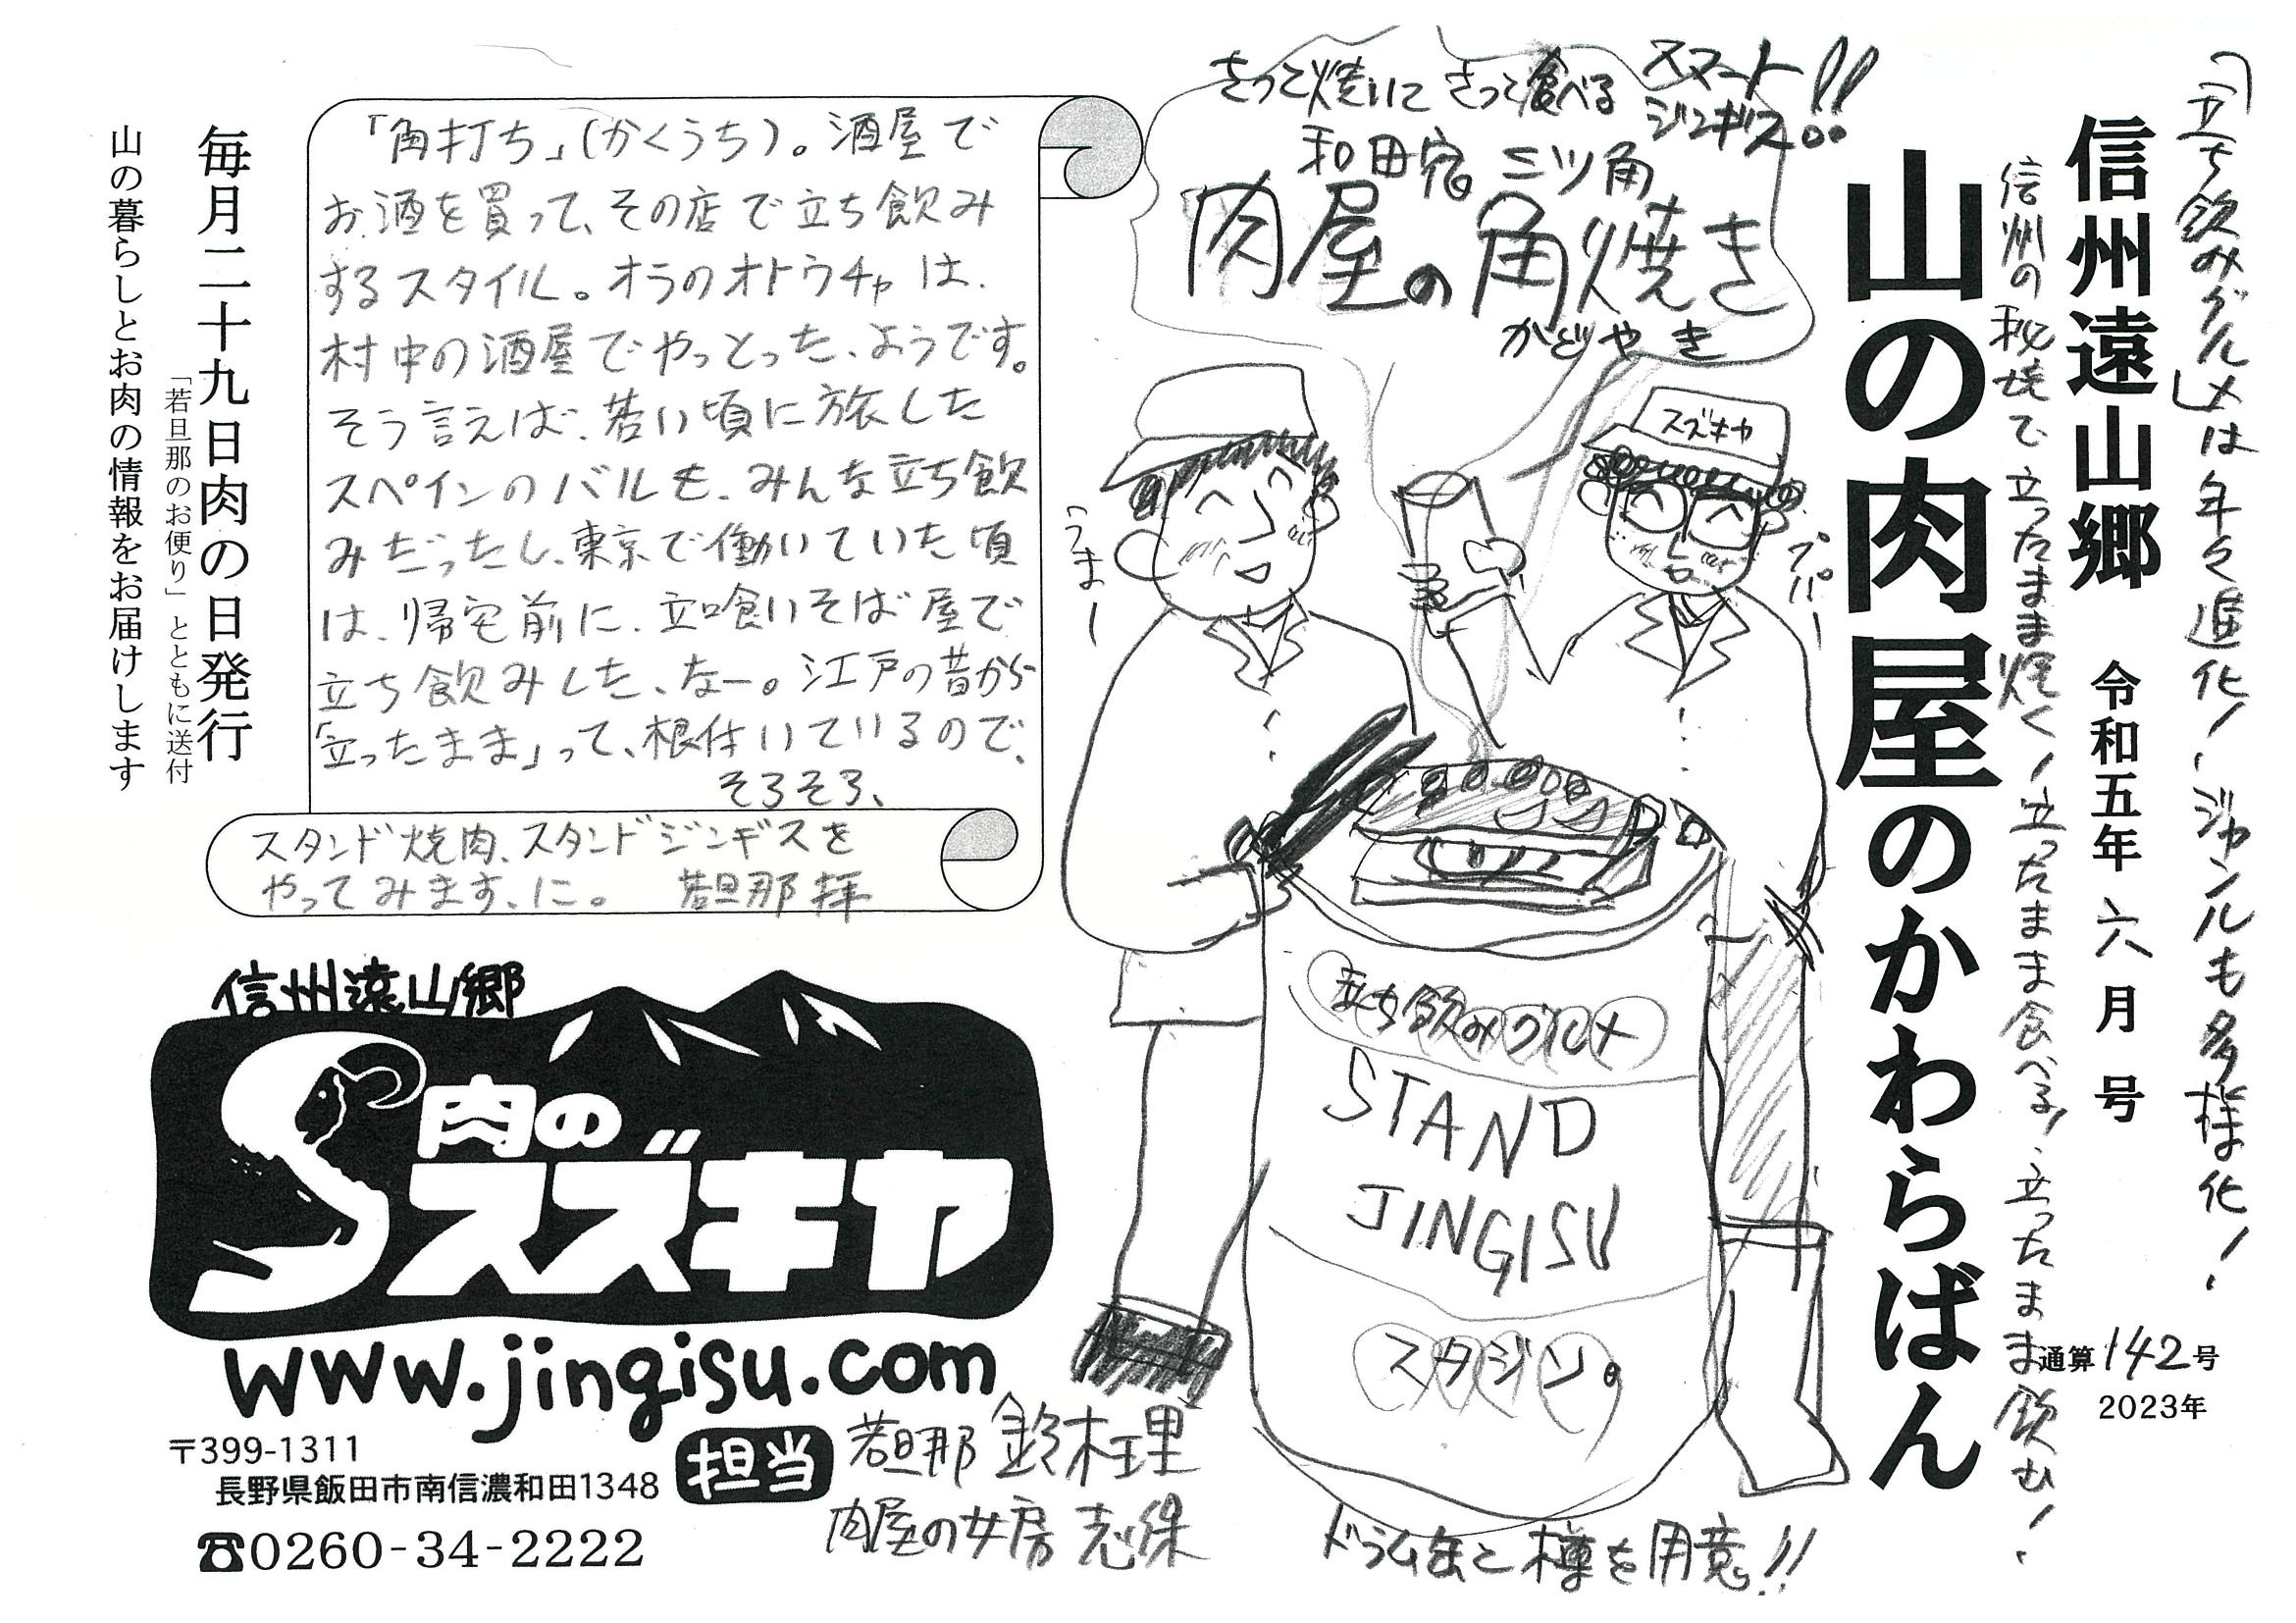 「立ち飲みグルメ」は年々進化！ジャンルも多様化！
信州遠山郷 令和五年 六月号
通算142号
2023年
信州の秘境で立ったまま焼く！立ったまま食べる！立ったまま飲む！
山の肉屋のかわらばん
さって焼いて さって食べる スマート
ジンギス!!
和田宿 三ツ角
肉屋の角焼き
かどやき
スズキヤ
うまー
プパー
立ち飲みグルメ
STAND
JINGISU
スタジン。
ドラム缶と樽を用意!!
「角打ち」(かくうち)。酒屋で
お酒を買って、その店で立ち飲み
するスタイル。オラのオトウチャは、
村中の酒屋でやっとった、ようです。
そう言えば、若い頃に旅した
スペインのバルも、みんな立ち飲
みだったし、東京で働いていた頃
は、帰宅前に、立喰いそば屋で
立ち飲みした、なー。江戸の昔から
「立ったまま」って、根付いているので、
そろそろ、
スタンド焼肉、スタンドジンギスを
やってみます、に。 若旦那 拝
毎月二十九日肉の日発行
「若旦那のお便り」とともに送付
山の暮らしとお肉の情報をお届けします
信州遠山郷
肉の
スズキヤ
www.jingisu.com
〒399-1311
長野県飯田市南信濃和田1348
☎0260-34-2222
担当
若旦那 鈴木理
肉屋の女房 志保